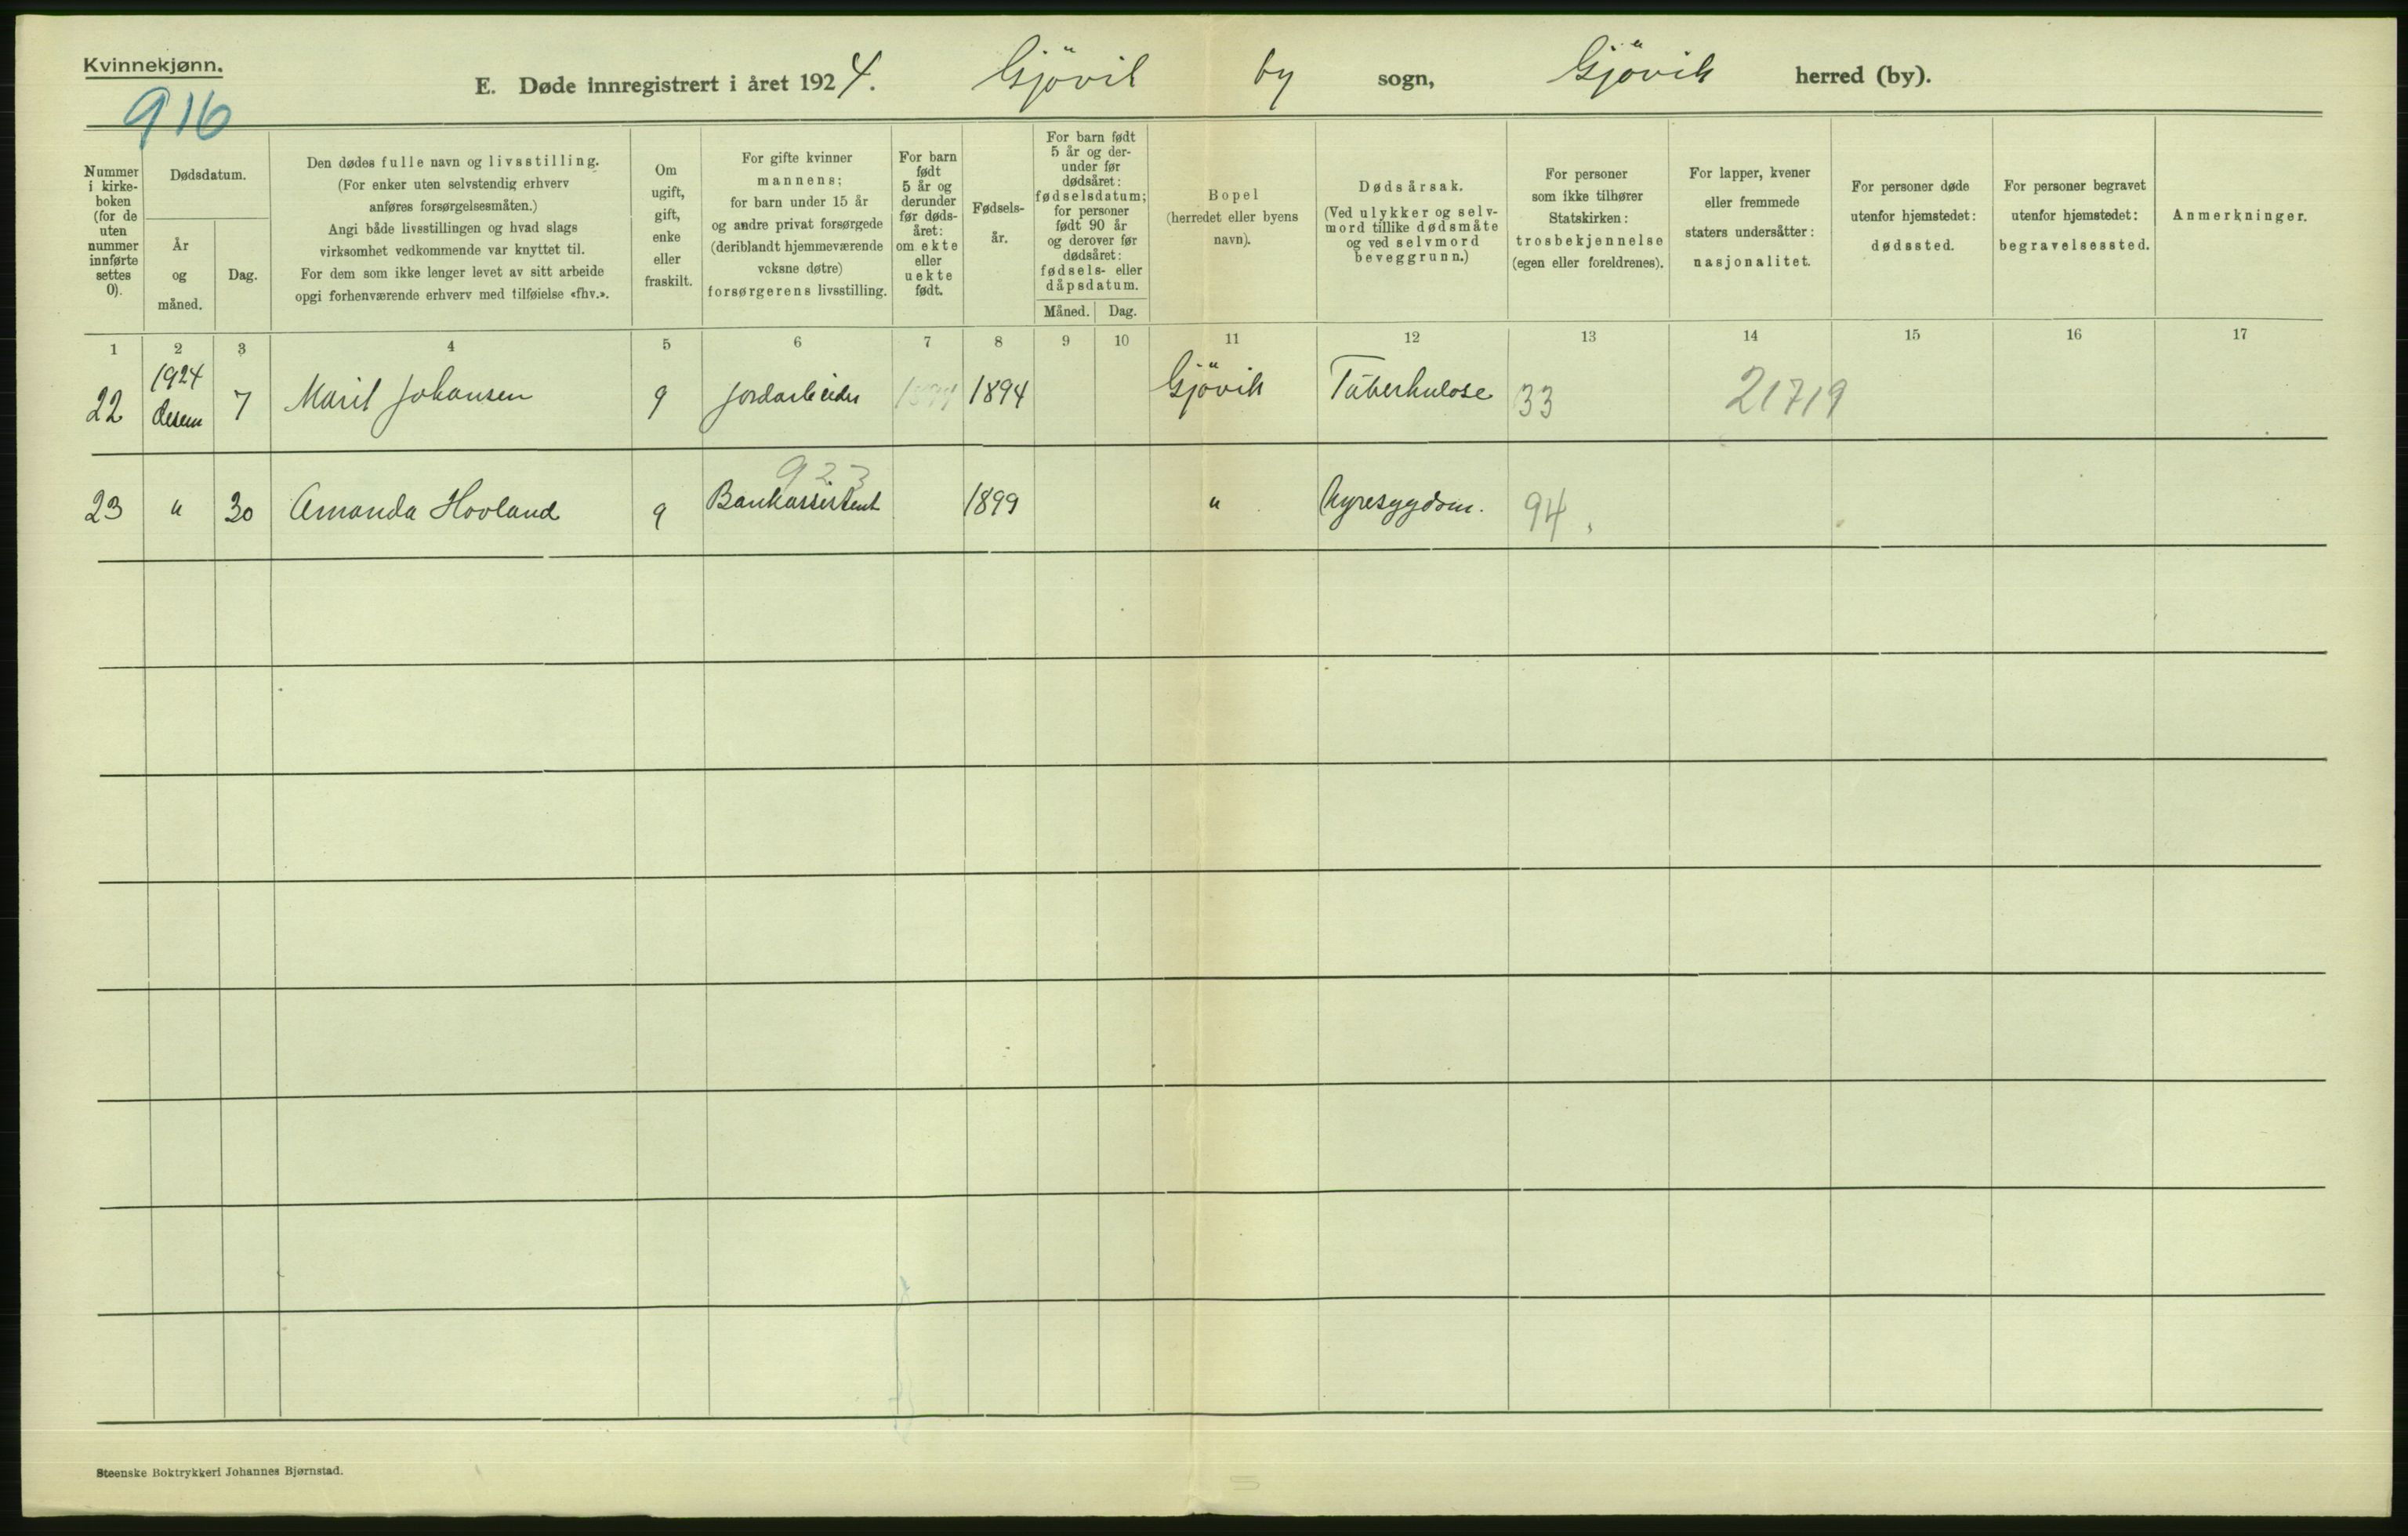 Kvinnekjønn.
916
E. Døde innregistrert i året 1924. Gjövik by sogn, Gjövik herred (by).
Nummer i kirke-boken (for de uten nummer innførte settes 0).
Dødsdatum.
År og måned.
Dag.
Den dødes fulle navn og livsstilling.
(For enker uten selvstendig erhverv
anføres forsørgelsesmåten.)
Angi både livsstillingen og hvad slags
virksomhet vedkommende var knyttet til.
For dem som ikke lenger levet av sitt arbeide
opgi forhenværende erhverv med tilføielse «fhv.».
Om
ugift,
gift,
enke
eller
fraskilt.
For gifte kvinner
mannens;
for barn under 15 år
og andre privat forsørgede
(deriblandt hjemmeværende
voksne døtre)
forsørgerens livsstilling.
For barn
født
5 år og
derunder
før døds-
året:
om ekte
eller
uekte
født.
Fødsels-
år.
For barn født
5 år og der-
under før
dødsåret:
fødselsdatum;
for personer
født 90 år
og derover før
dødsåret:
fødsels- eller
dåpsdatum.
Måned. Dag.
Bopel
(herredet eller byens
navn).
Dødsårsak.
(Ved ulykker og selv-
mord tillike dødsmåte
og ved selvmord
beveggrunn.)
For personer
som ikke tilhører
Statskirken:
trosbekjennelse
(egen eller foreldrenes).
For lapper, kvener
eller fremmede
staters undersåtter:
nasjonalitet.
For personer døde
utenfor hjemstedet:
dødssted.
For personer begravet
utenfor hjemstedet:
begravelsessted.
Anmerkninger.
1 2 3 4 5 6 7 8 9 10 11 12 13 14 15 16 17
1924
22 desem 7 Marit Johansen g Jordarbeider 1894 1894 Gjövik Tuberkulose 33 21719
923
23 " 30 Amanda Hovland g Bankassistent 1899 " Nyresygdom. 94
Steenske Boktrykkeri Johannes Bjørnstad.